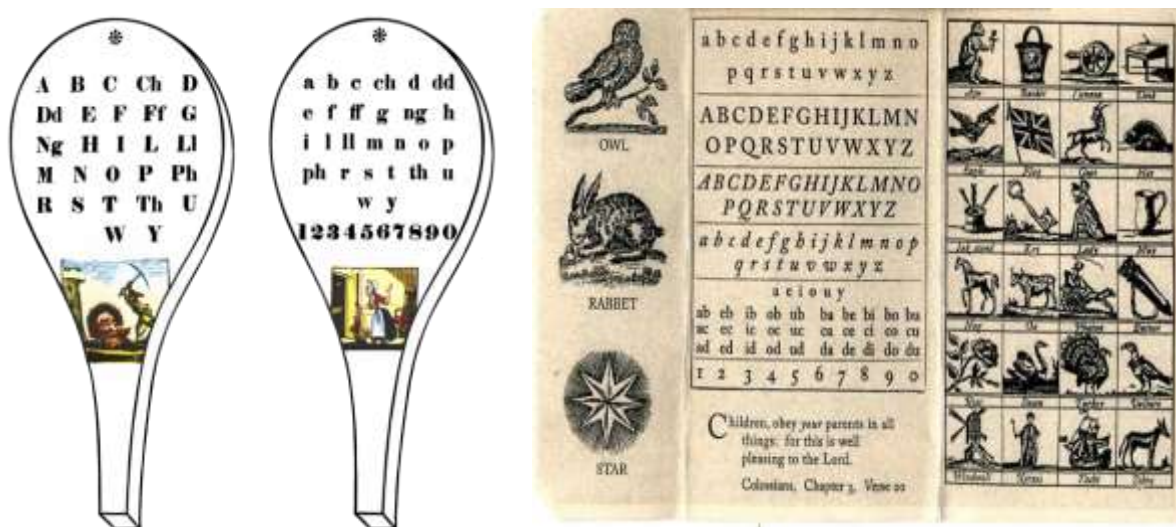 A B C Ch D
Dd E F Ff G
Ng H I L Ll
M N O P Ph
R S T Th U
W Y
a b c ch d dd
e f ff g ng h
i l ll m n o p
ph r s t th u
w y
1234567890
OWL
RABBET
STAR
a b c d e f g h i j k l m n o
p q r s t u v w x y z
ABCDEFGHIJKLMN
OPQRSTUVWXYZ
ABCDEFGHIJKLMNO
PQRSTUVWXYZ
a b c d e f g h i j k l m n o p
q r s t u v w x y z
a e i o u y
ab eb ib ob ub ba be bi bo bu
ac ec ic oc uc ca ce ci co cu
ad ed id od ud da de di do du
1 2 3 4 5 6 7 8 9 0
Children, obey your parents in all
things: for this is well
pleasing to the Lord.
Colossians, Chapter 3, Verse 20
Eagle Flag Goat
Ink stand Key Lady Mug
Nag Ox
Rose Swan Turkey Vulture
Windmill Xerxes Yacht Zebra